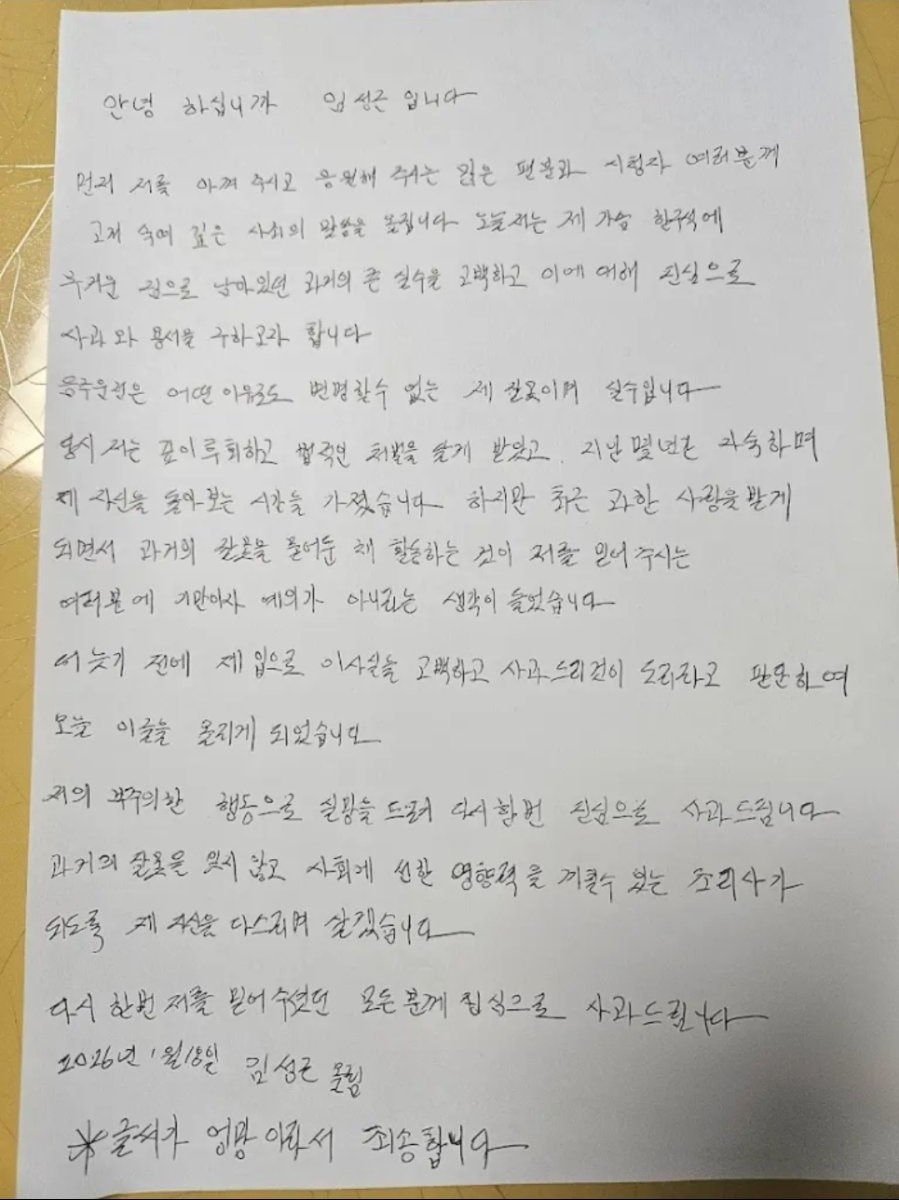 안녕 하십니까 임성근 입니다
먼저 저를 아껴 주시고 응원해 주시는 많은 팬분과 시청자 여러분께
고개 숙여 깊은 사죄의 말씀을 올립니다 오늘 저는 제 가슴 한구석에
무거운 짐으로 남아있던 과거의 큰 실수을 고백하고 이에 대해 진심으로
사과와 용서을 구하고자 합니다
음주운전은 어떤 이유로도 변명할수 없는 제 잘못이며 실수입니다
당시 저는 깊이 후회하고 법적인 처벌을 달게 받았고. 지난 몇년은 자숙하며
제 자신을 돌아 보는 시간을 가졌습니다 하지만 최근 과한 사랑을 받게
되면서 과거의 잘못을 묻어둔 채 활동하는 것이 저를 믿어 주시는
여러분에 기만이자 예의가 아니라는 생각이 들었습니다
더 늦기 전에 제 입으로 이사실을 고백하고 사과드리것이 도리라고 판단하여
오늘 이글을 올리게 되었습니다
저의 부주의한 행동으로 실망을 드려 다시한번 진심으로 사과드립니다
과거의 잘못을 잊지 않고 사회에 선한 영향력을 끼칠수 있는 조리사가
되도록 제 자신을 다스리며 살겠습니다
다시 한번 저를 믿어 주셨던 모든 분께 진심으로 사과드립니다
2026년 1월18일 임성근 올림
※글씨가 엉망 이라서 죄송합니다